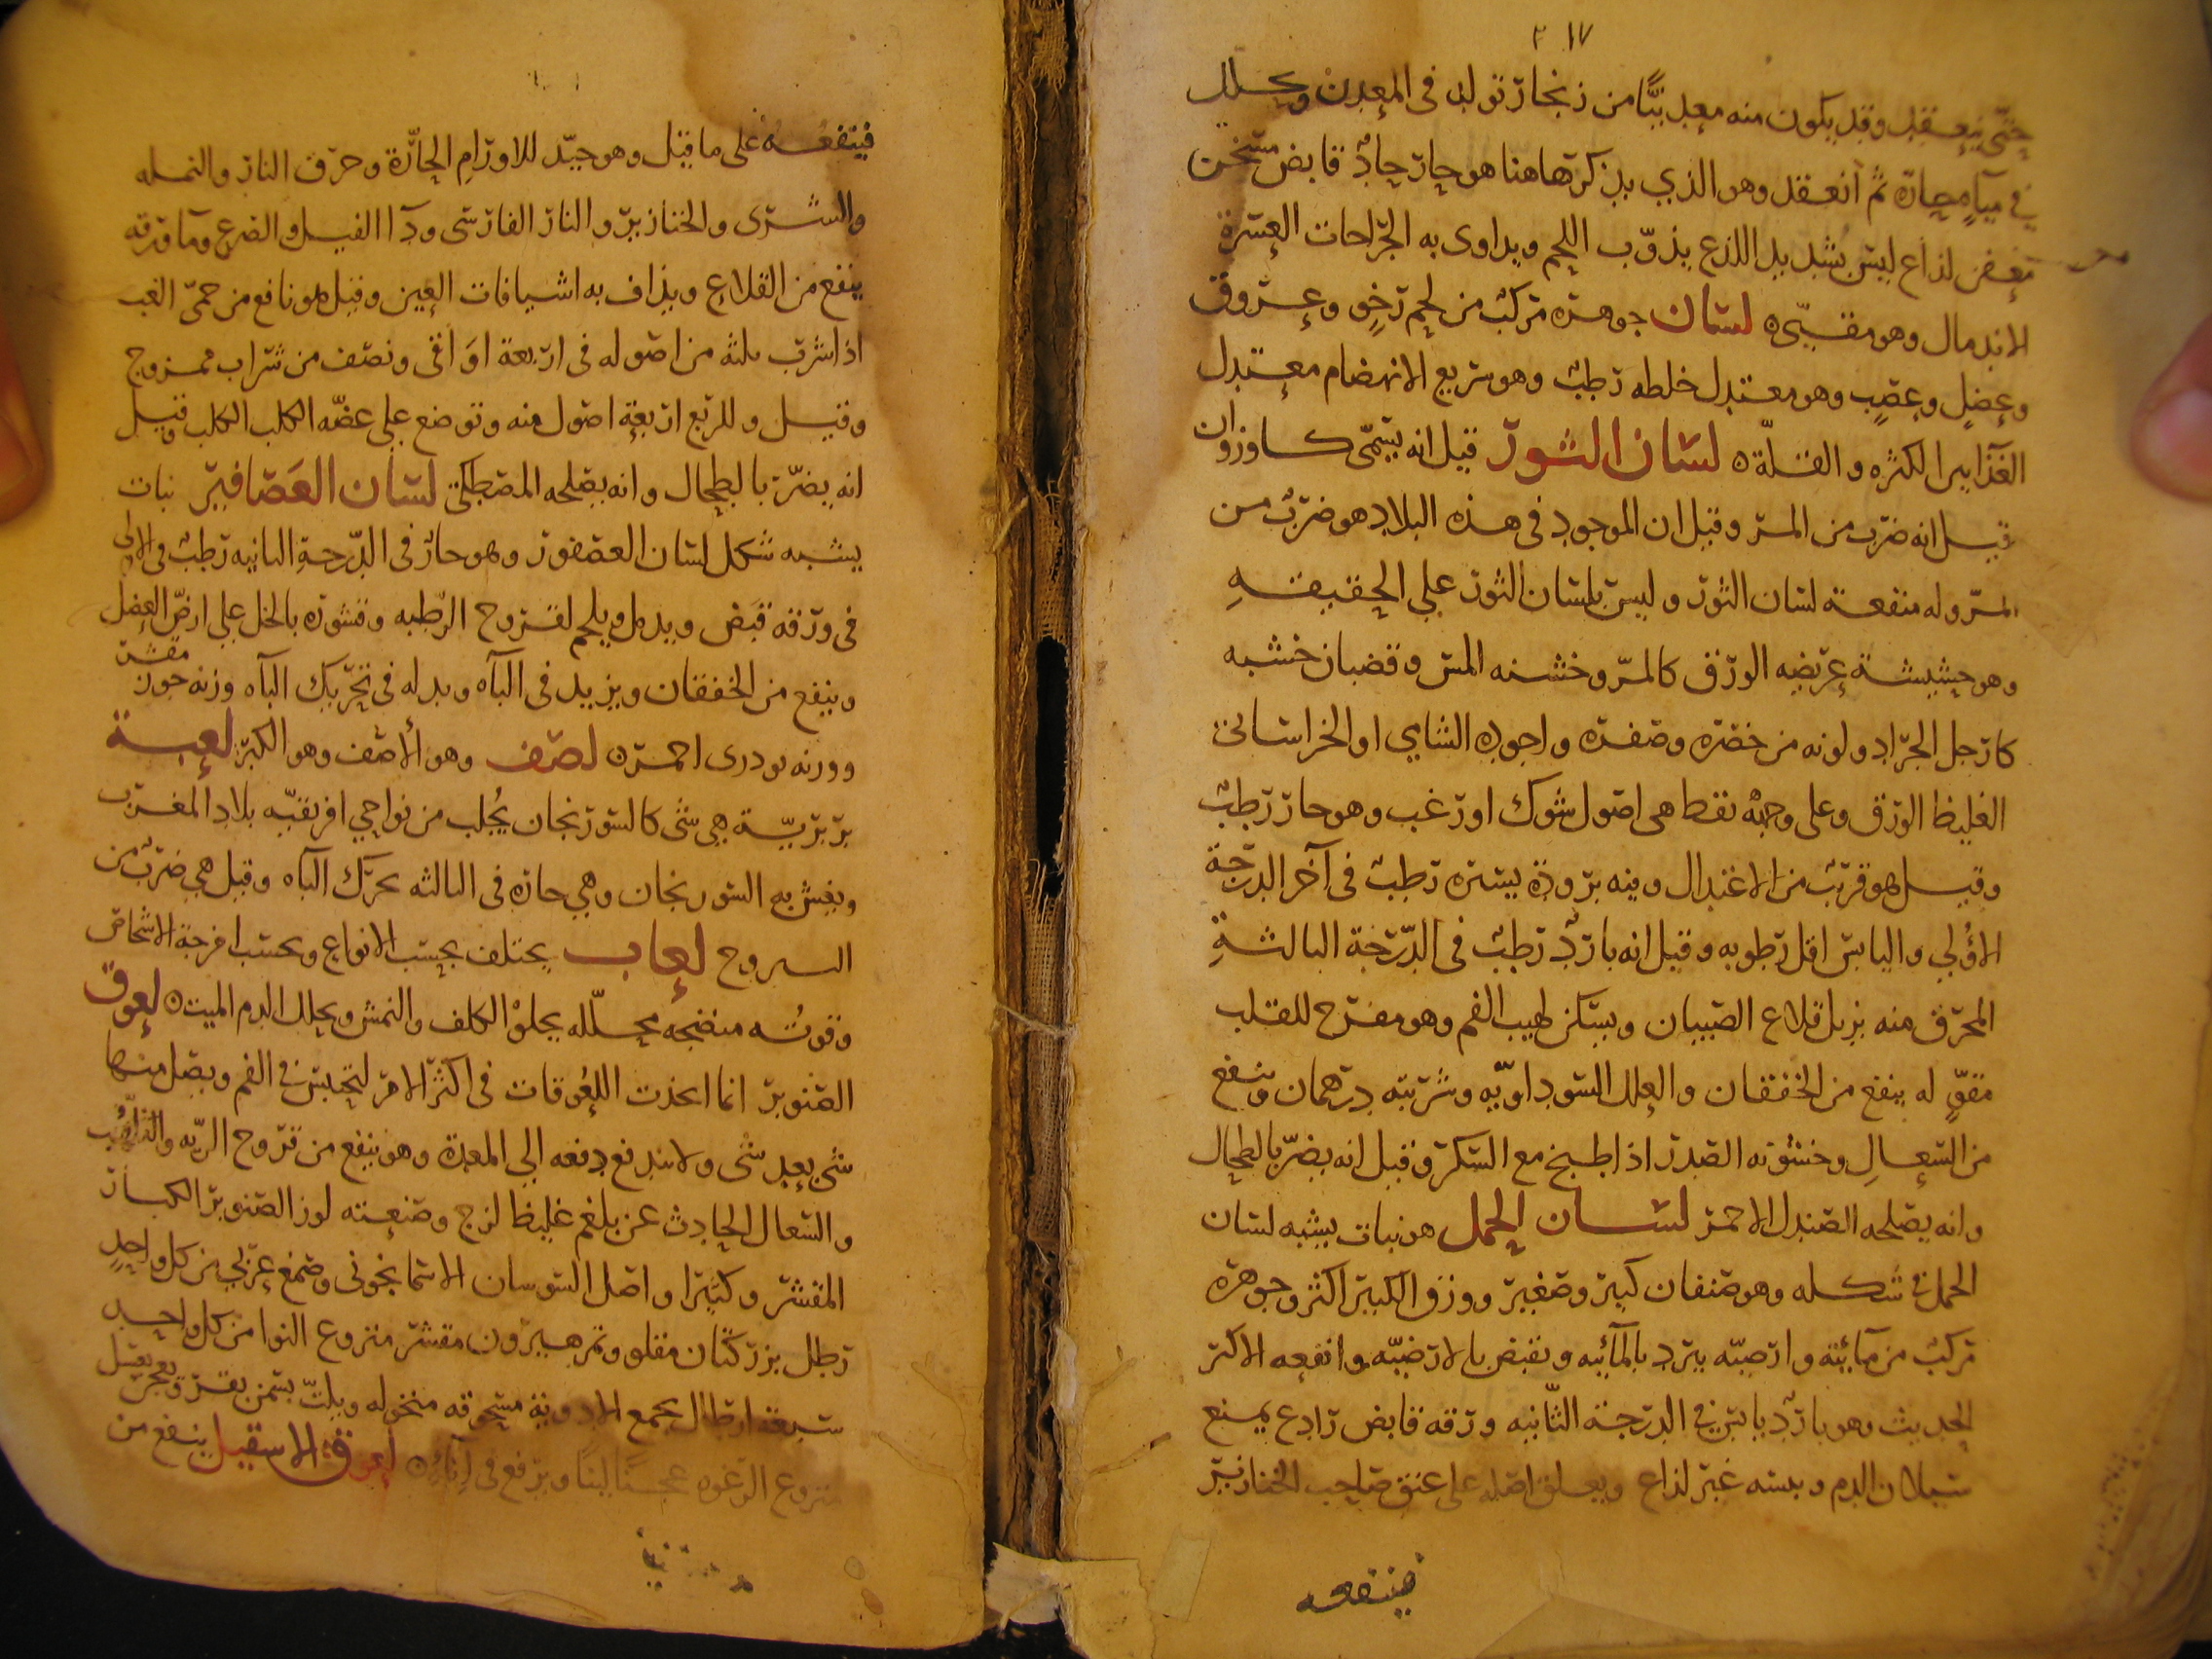 ٣١٧
حتى ينعقد وقد يكون منه معدنيًّا من زنجار تولد في المعدن ويحلل
في مياهٍ حارّه ثم انعقد وهو الذي بذكرتها هنا هو حارّ حادّ قابض مسخن
معفن لذاع ليس بشديد اللذع يذوّب اللحم ويداوى به الجراحات العسرة
الاندمال وهو مقيّئ ه لسان جوهره مركب من لحم رخوٍ وعروق
وعضلٍ وعصبٍ وهو معتدل خلطه رطبٌ وهو سريع الانهضام معتدل
الغذا بين الكثره والقلّة ه لسان الثور قيل انه يسمّى كاوزوان
قيل انه ضرب من المر وقيل ان الموجود في هذه البلاد هو ضربٌ من
المرّ وله منفعة لسان الثور وليس بلسان الثور على الحقيقةِ
وهو حشيشة عريضه الورق كالمرّ وخشنه المس وقضبان خشبه
كارجل الجراد ولونه من خضره وصفره واجوده الشامي او الخراساني
الغليظ الورق وعلى وجهه نقط هي اصول شوك او زغب وهو حار رطبٌ
وقيل هو قريب من الاعتدال وفيه برودة يسيره رطبٌ في آخر الدرجة
الاؤلى واليابس اقل رطوبه وقيل انه باردٌ رطبٌ في الدرجة الثالثةِ
المحرق منه يزيل قلاع الصبيان ويسكن لهيب الفم وهو مفرح للقلب
مقوٍّ له ينفع من الخفقان والعلل السوداويّه وشربته درهمان وينفع
من السعالِ وخشونه الصدر اذا طبخ مع السكر وقيل انه يضرّ بالطحال
وانه يصلحه الصندل الاحمر لسان الحمل هو نبات يشبه لسان
الحمل في شكله وهو صنفان كبير وصغير وورق الكبير اكثر وجوهره
مركبٌ من مآئية وارضيّه يبرد بالمآئيه ويقبض بالارضيّه وانفعه الاكثر
الحديث وهو باردٌ يابس في الدرجة الثّانيه ورقه قابض رادع يمنع
سيلان الدم ويبسه غير لذاع ويعلق اصله على عنق صاحب الخنازير
فينفعه
فينفعه على ما قيل وهو جيّد للاورام الحارّة وحرق النار والنمله
والشرى والخنازير والنار الفارسى ودآ الفيل والصرع ومآ ورقه
ينفع من القلاع ويذاف به اشيافات العين وقيل هو نافع من حمّى الغب
اذا شرب ثلثه من اصوله في اربعة اوَاقى ونصف من شراب ممزوج
وقيل وللربع اربعة اصول منه وتوضع على عضّه الكلب الكلب وقيل
انه يضرّ بالطحال وانه يصلحه المصطكى لسان العَصافير نبات
يشبه شكل لسان العصفور وهو حارّ في الدّرجة الثانيه رطبٌ في الاولى
في ورقه قبَض ويدمل ويلحم لقروح الرّطبه وقشوره بالخل على ارضّ العضل
وينفع من الخفقان ويزيد في الباه وبدله في تحريك الباه وزنه جوز مقشر
ووزنه تودرى احمر ه لصف وهو الأصف وهو الكبر لعبة
بربريّة هي شى كالسورنجان يُجلب من نواحي افريقيّه بلاد المغرب
ويغش به السورنجان وهي حاره في الثالثه تحرك الباه وقيل هي ضربٌ من
اليبروح لعاب يختلف بحسب الانواع وبحسب امزجة الاشخاص
وقوتُه منضجه محلّله يجلوُ الكلف والنمش ويحلل الدم الميت ه لعوق
الصنوبر انما اتخذت اللعُوقات في اكثر الامر لتحبس في الفم ويصل منها
شى بعد شى ولا يندفع دفعه الى المعدة وهو ينفع من قروح الريّه
والسعال الحادث عن بلغم غليظ لزج وصنعته لوز الصنوبر الكبار
المقشر وكثيرا واصل السوسان الاسمانجونى وصمغ عربي من كل واحدٍ
رطل بزر كتان مقلو وتمر هيرون مقشر منزوع النوا من كل واحد
سبعة ارطال يجمع الادوية مسحوقه منخوله ويلتّ بسمن بقر ويعجن بعسل
منزوع الرغوه عجنًا لينًا ويرفع في إنآءٍ ه لعوق الاسقيل ينفع من